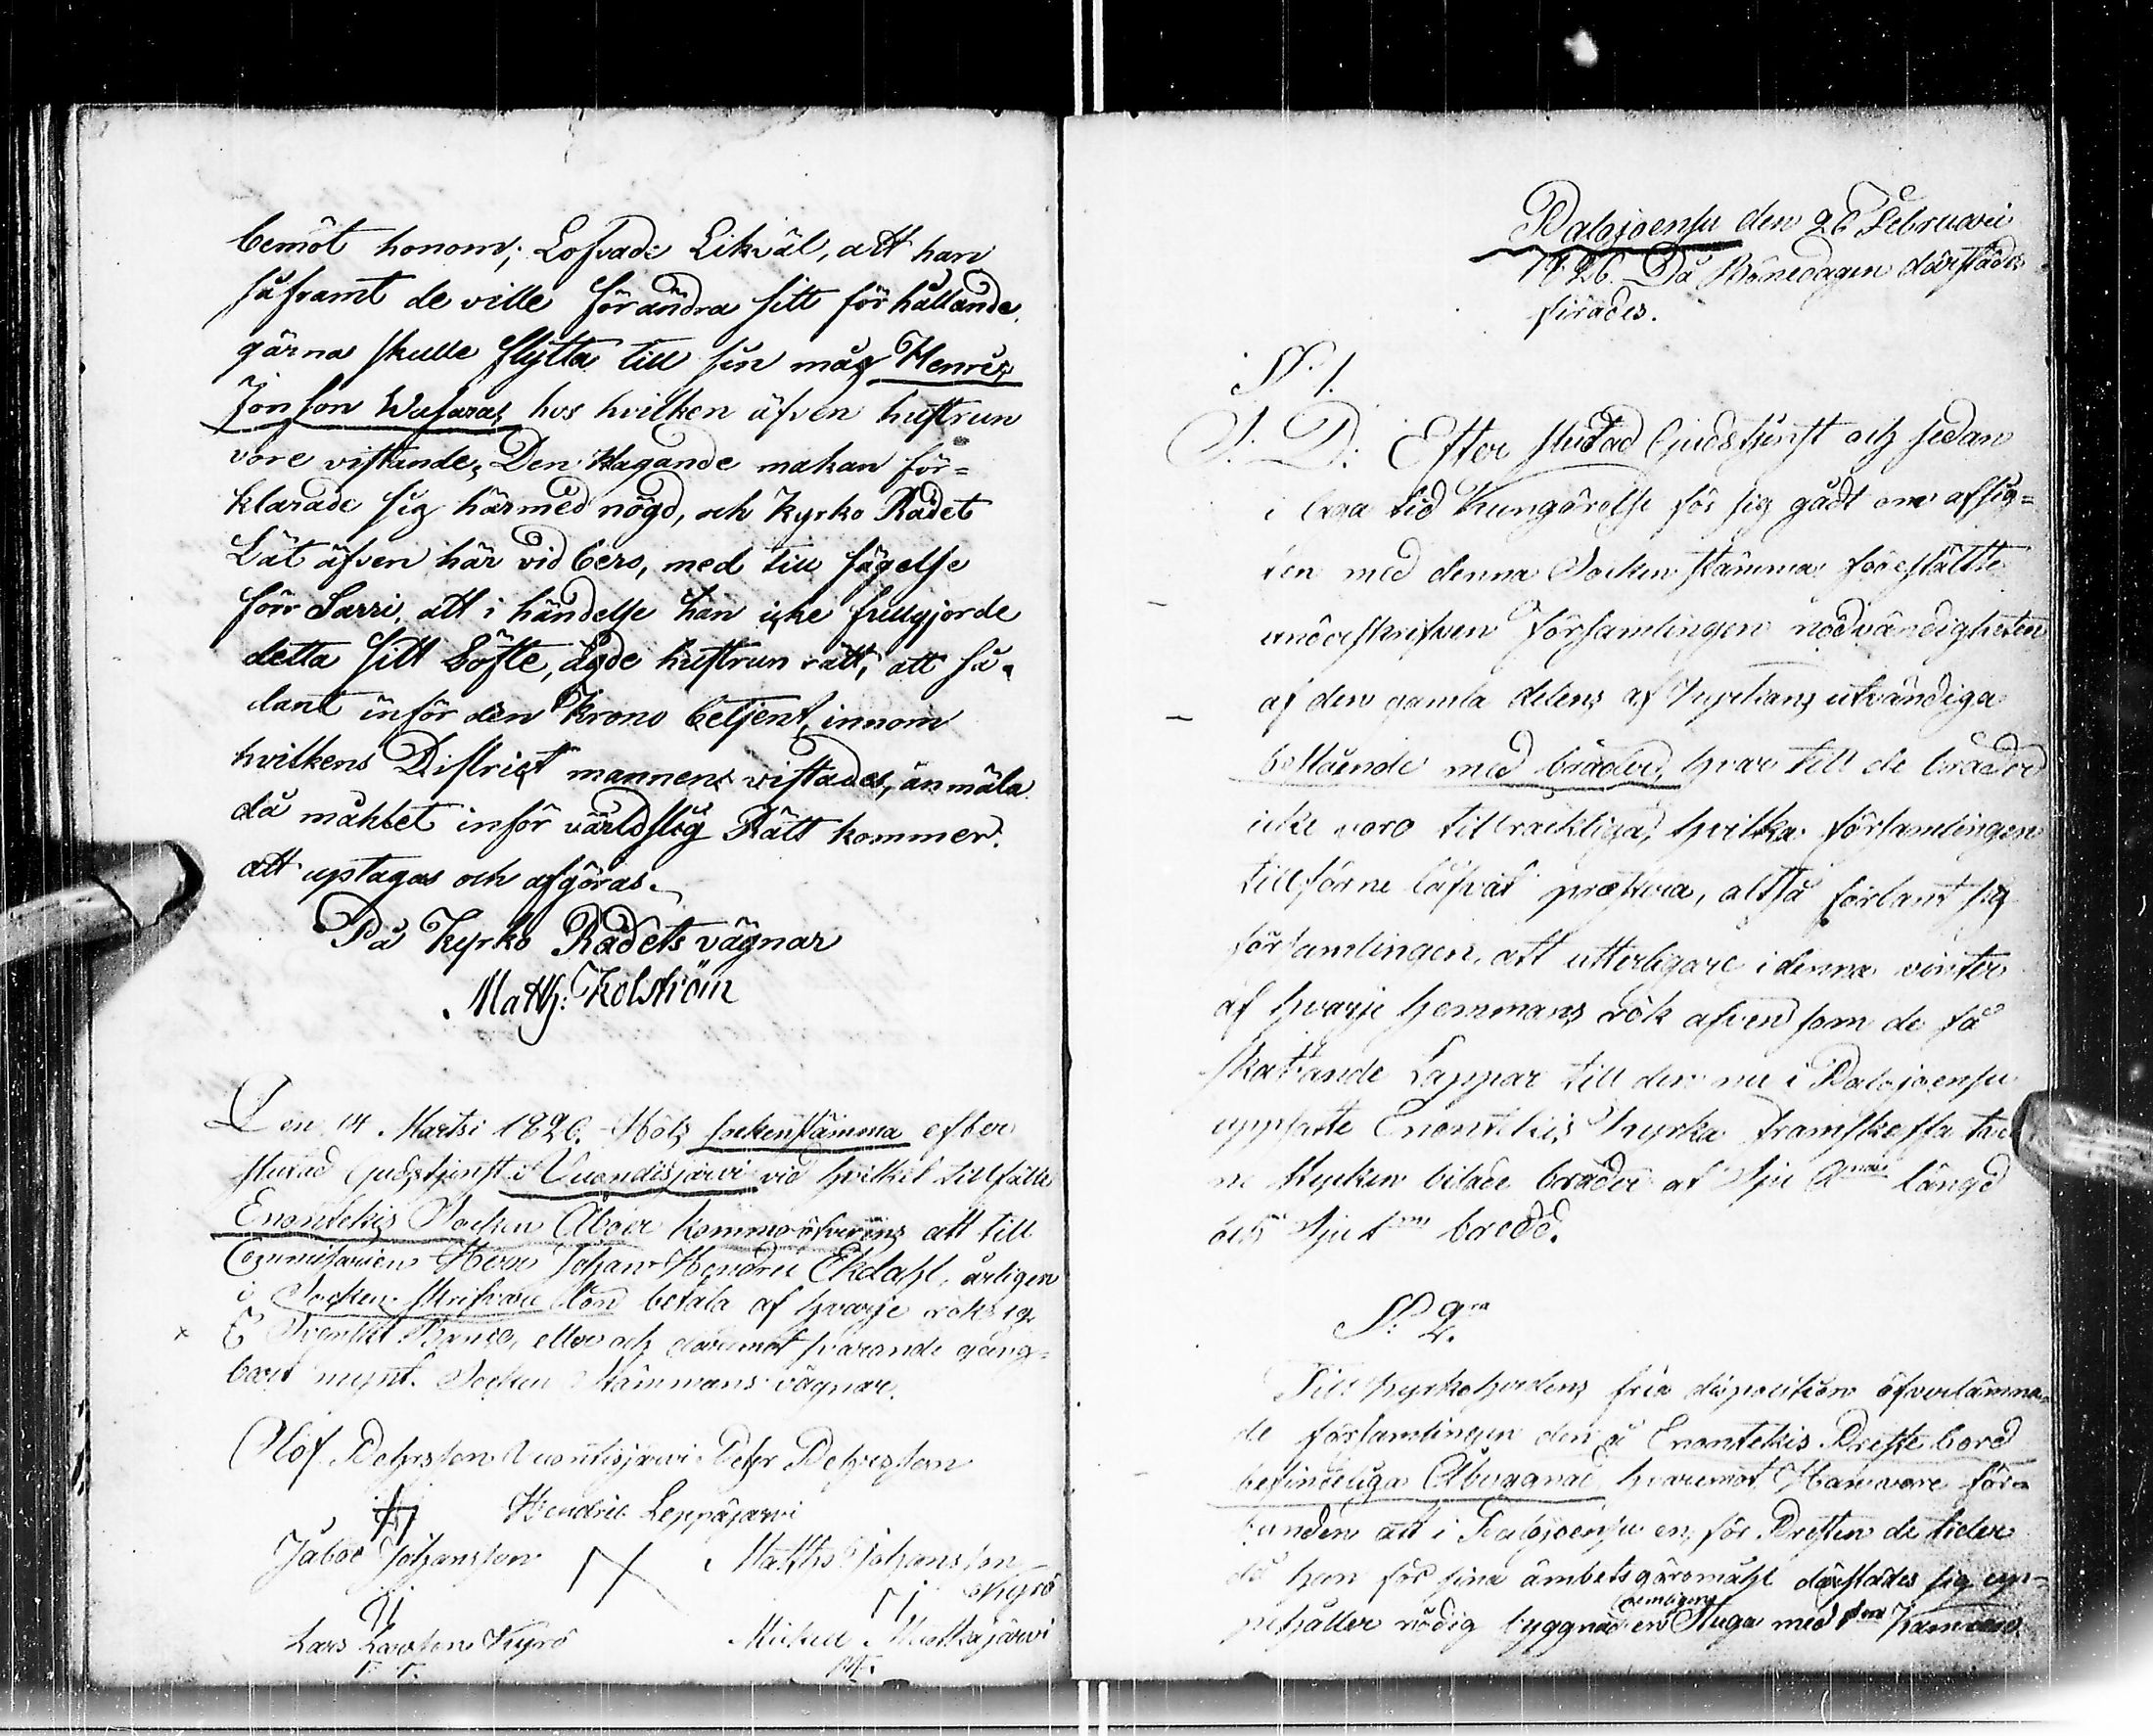 bemöt honom; Lofvade Likväl, att han
såframt de ville förändra sitt förhållande
gärna skulle flytta till sin måg Henric
Jonson Wasaras hos hvilken äfven hustrun
vore vistande; Den klagande makan för=
klarade sig härmed nögd, och Kyrko Rådet
Lät äfven här vid bero, med till sägelse
för Sarri, att i händelse han icke fullgjorde
detta sitt Löfte, ägde hustrun rätt, att så-
dant inför den Krono betjent, innom
hvilkens District mannen vistades, anmäla
då måhlet inför världslig Rätt kommer
att uptagas och afgöras.
På Kyrko Rådets vägnar
Matth: Kolström
Den 14 Martsi 1826. Höls sockenstämma efter
slutad Gudstjenst i Vuondisjärvi vid hvilket tillfälle
Enontekis Socken Åboer kommo öfverens att till
Commissarien Herr Johan Hendric Ekdahl, årligen
i Socken skrifvare lön betala af hvarje rök 12
ß Svenskt Banco, eller och däremot svarande gång=
bart mynt. Socken Stämmans vägnar.
Olof Pehrsson Vuontisjärvi Pehr Pehrsson
Hendric Leppäjärvi
Jacob Johansson Matths Johansson
Kyrö
Lars Larsson Kyrö Mickel Muotkajärvi
Palojoensu den 26 Februarii
1826. Då Bönedagen därstädes
firades.
S. 1.
S. D. Efter slutad Gudstjenst och sedan
i laga tid Kungörelse för sig gådt om afsig=
ten med denna Socken stämma, förestältte
underskrifven Församlingen nödvändigheten
af den gamla delens af Kyrkans utvändiga
beslående med bräder, hvar till de bräder
icke voro tillräckliga, hvilka församlingen
tillförne låfvat præstera, altså förbant sig
församlingen, att ytterligare i denna vinter
af hvarje hemmans rök äfven som de få
skattande Lappar till den nu i Palojoensu
uppsatte Enontekis Kyrka framskaffa tven
ne stycken bilade bräder af Sju Qnars längd
och Sju tms bredd.
S: 2.
Till Kyrkoherdens fria disposition öfverlämna=
de församlingen den å Enontekis Preste bord
befindeliga Åbyggnad hvaremot Han vore för=
bunden att i Palojoensu en, för Presten de tider
då han för sina ämbetsgöromåhl därstädes sig up=
nemligen
pehåller nödig byggnad en Stuga med Kammare